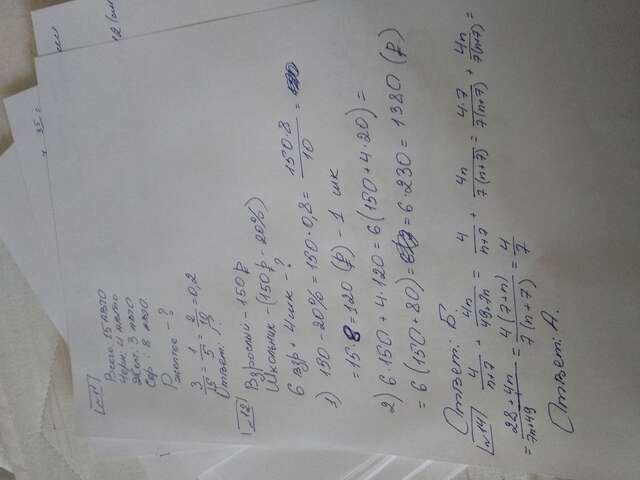 №11
Всего: 15 авто
Черн: 4 авто
Жел: 3 авто
Сер: 8 авто.
P желтое - ?
3/15 = 1/5 = 2/10 = 0,2
Ответ:
№12
Взрослый - 150 ₽
Школьник - (150 ₽ - 20%)
6 взр + 4 шк - ?
1) 150 - 20% = 150·0,8 = 150·8/10 =
= 15·8 = 120 (₽) - 1 шк
2) 6·150 + 4·120 = 6(150 + 4·20) =
= 6(150 + 80) = = 6·230 = 1380 (₽)
Ответ: Б.
№14 4/(n+7) + 4n/(49+7n) = 4/(n+7) + 4n/7(n+7) = 4·7/7(n+7) + 4n/7(n+7) =
= (28+4n)/(7n+49) = 4(7+n)/7(n+7) = 4/7
Ответ: А.